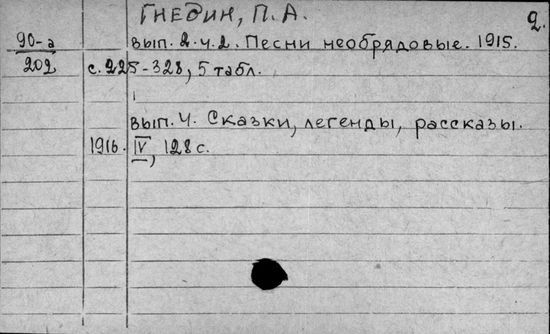 Гнедин, П. А.
2.
90-а
вып. 2. ч. 2. Песни необрядовые. 1915.
202
с. 225-328, 5 табл.
вып. 4. Сказки, легенды, рассказы.
1916. IV, 128 с.